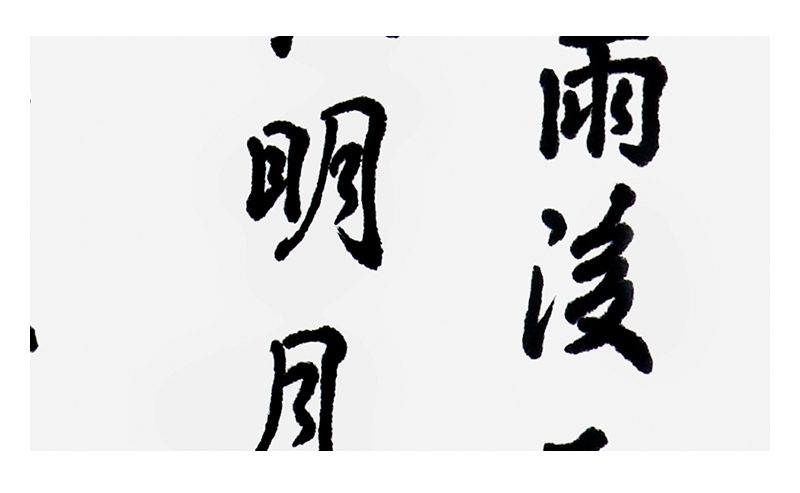 雨後
明月